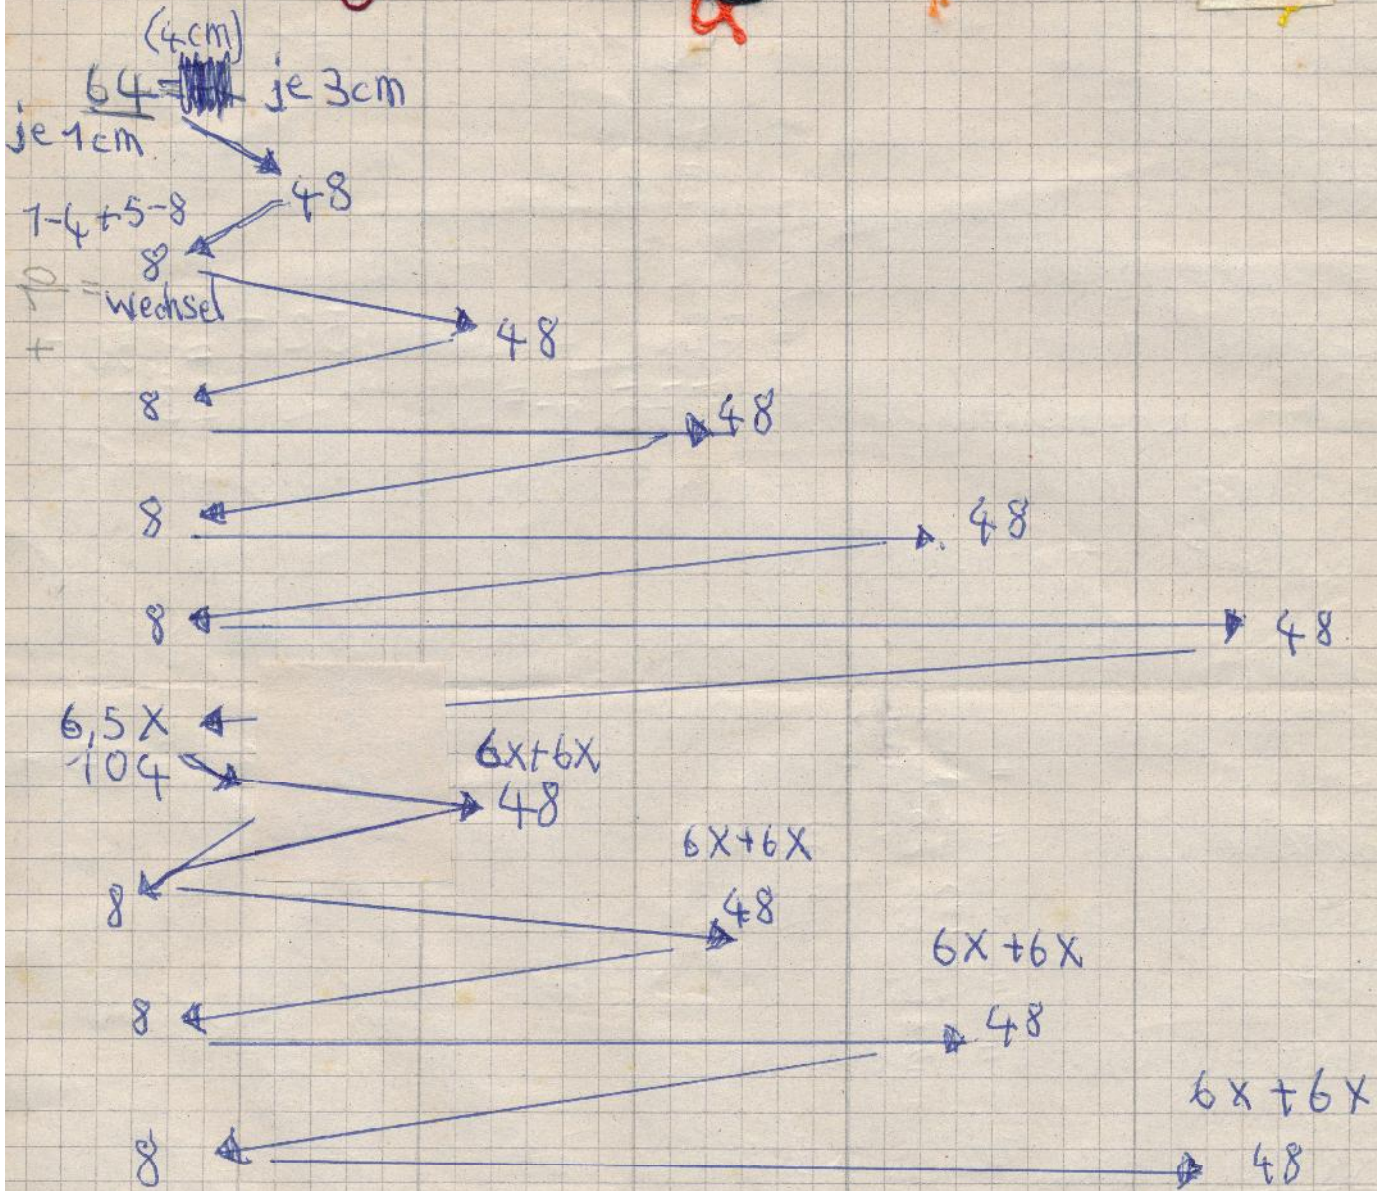 (4cm)
64 = je 3cm
je 1cm
48
1-4+5-8
8
= Wechsel
48
8
48
8
48
8
48
6,5 X
104
6X+6X
48
6X+6X
8
48
6X+6X
8
48
6X+6X
8
48